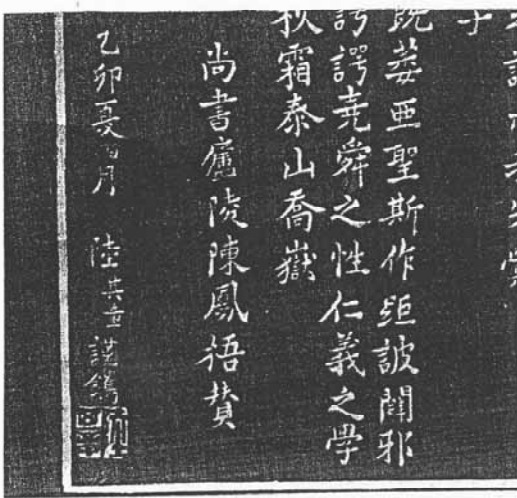 子
既萎亞聖斯作距詖闢邪
諤諤堯舜之性仁義之學
秋霜泰山喬嶽
尚書廬陵陳鳳梧贊
乙卯夏月 陸其謹鐫